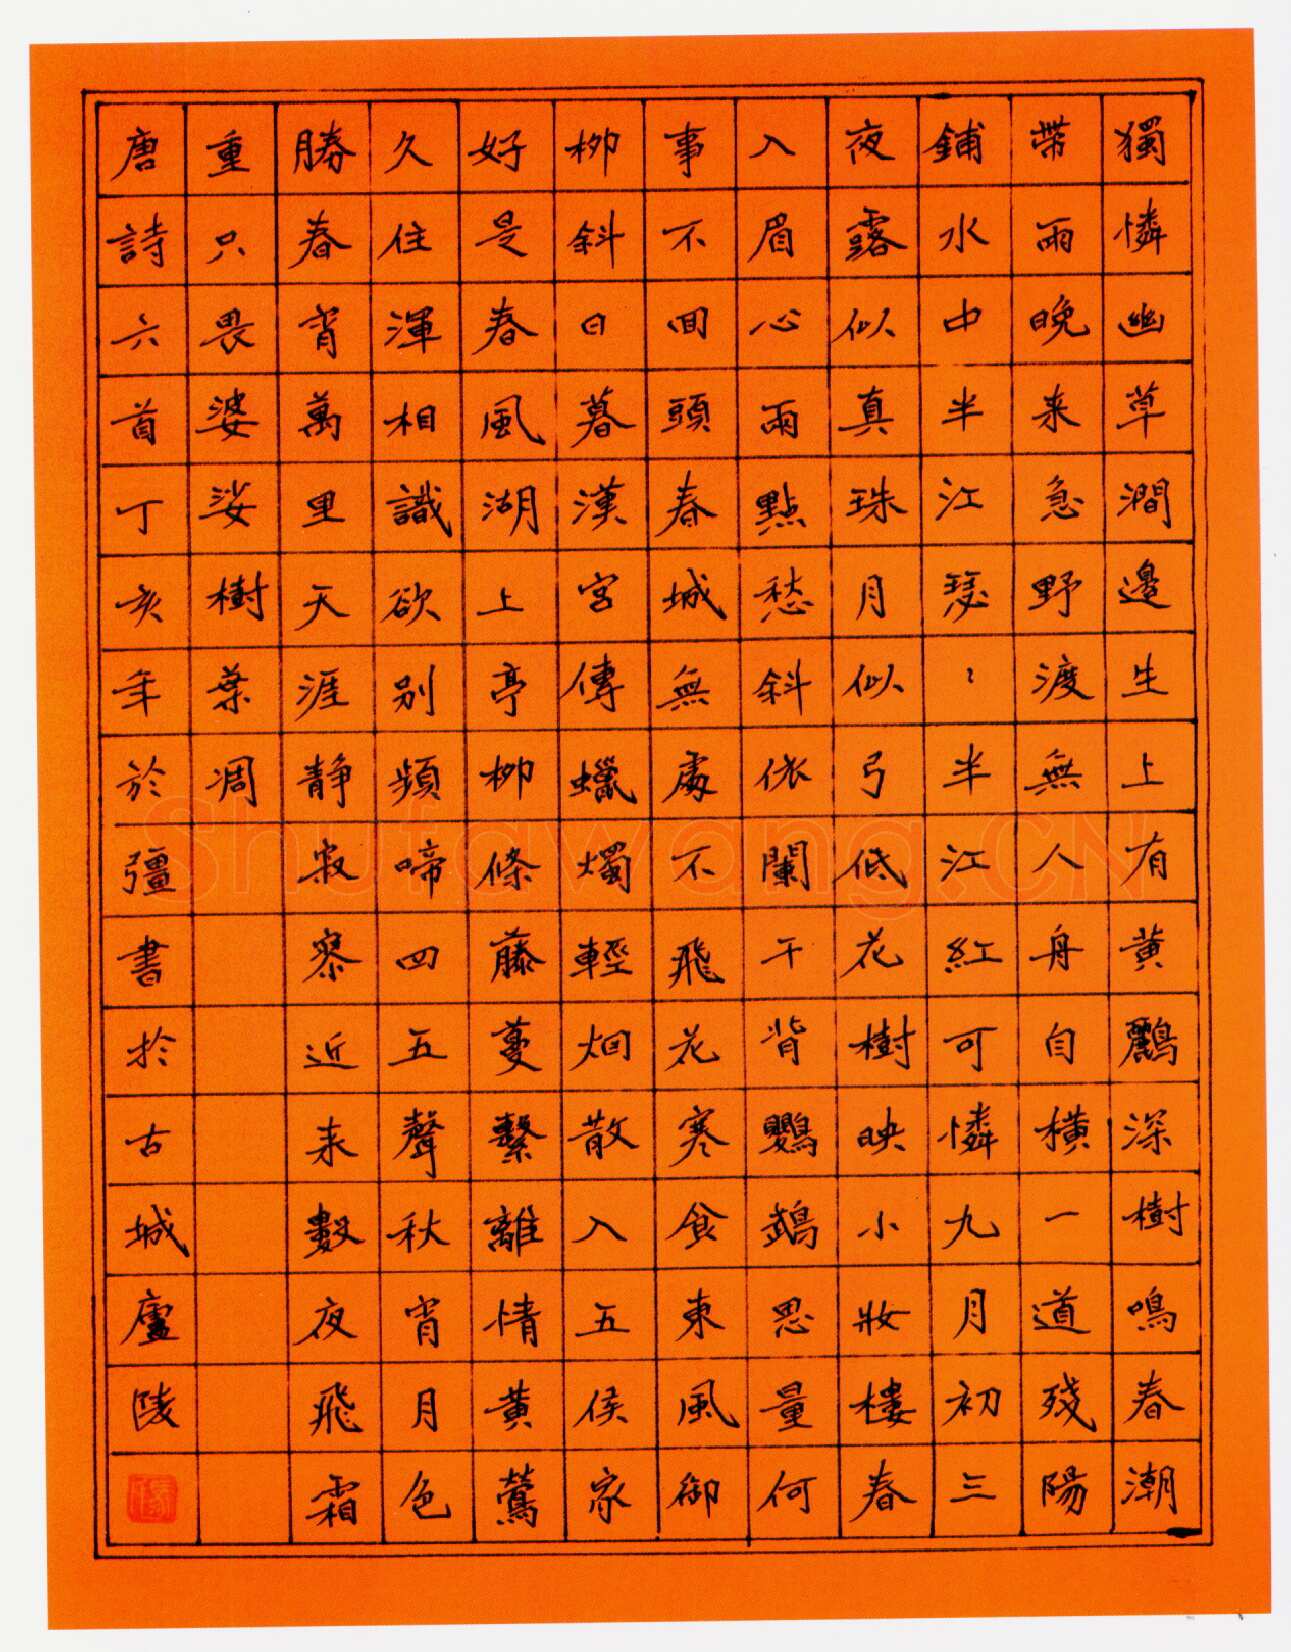 獨憐幽草澗邊生上有黃鸝深樹鳴春潮
帶雨晚来急野渡無人舟自橫一道殘陽
鋪水中半江瑟〻半江紅可憐九月初三
夜露似真珠月似弓低花樹映小妝樓春
入眉心兩點愁斜依闌干背鸚鵡思量何
事不回頭春城無處不飛花寒食東風御
柳斜日暮漢宮傳蠟燭輕烟散入五侯家
好是春風湖上亭柳條藤蔓繫離情黃鶯
久住渾相識欲別頻啼四五聲秋宵月色
勝春宵萬里天涯靜寂寥近来數夜飛霜
重只畏婆娑樹葉凋
唐詩六首丁亥年於彊書於古城廬陵
Shufawang.CN